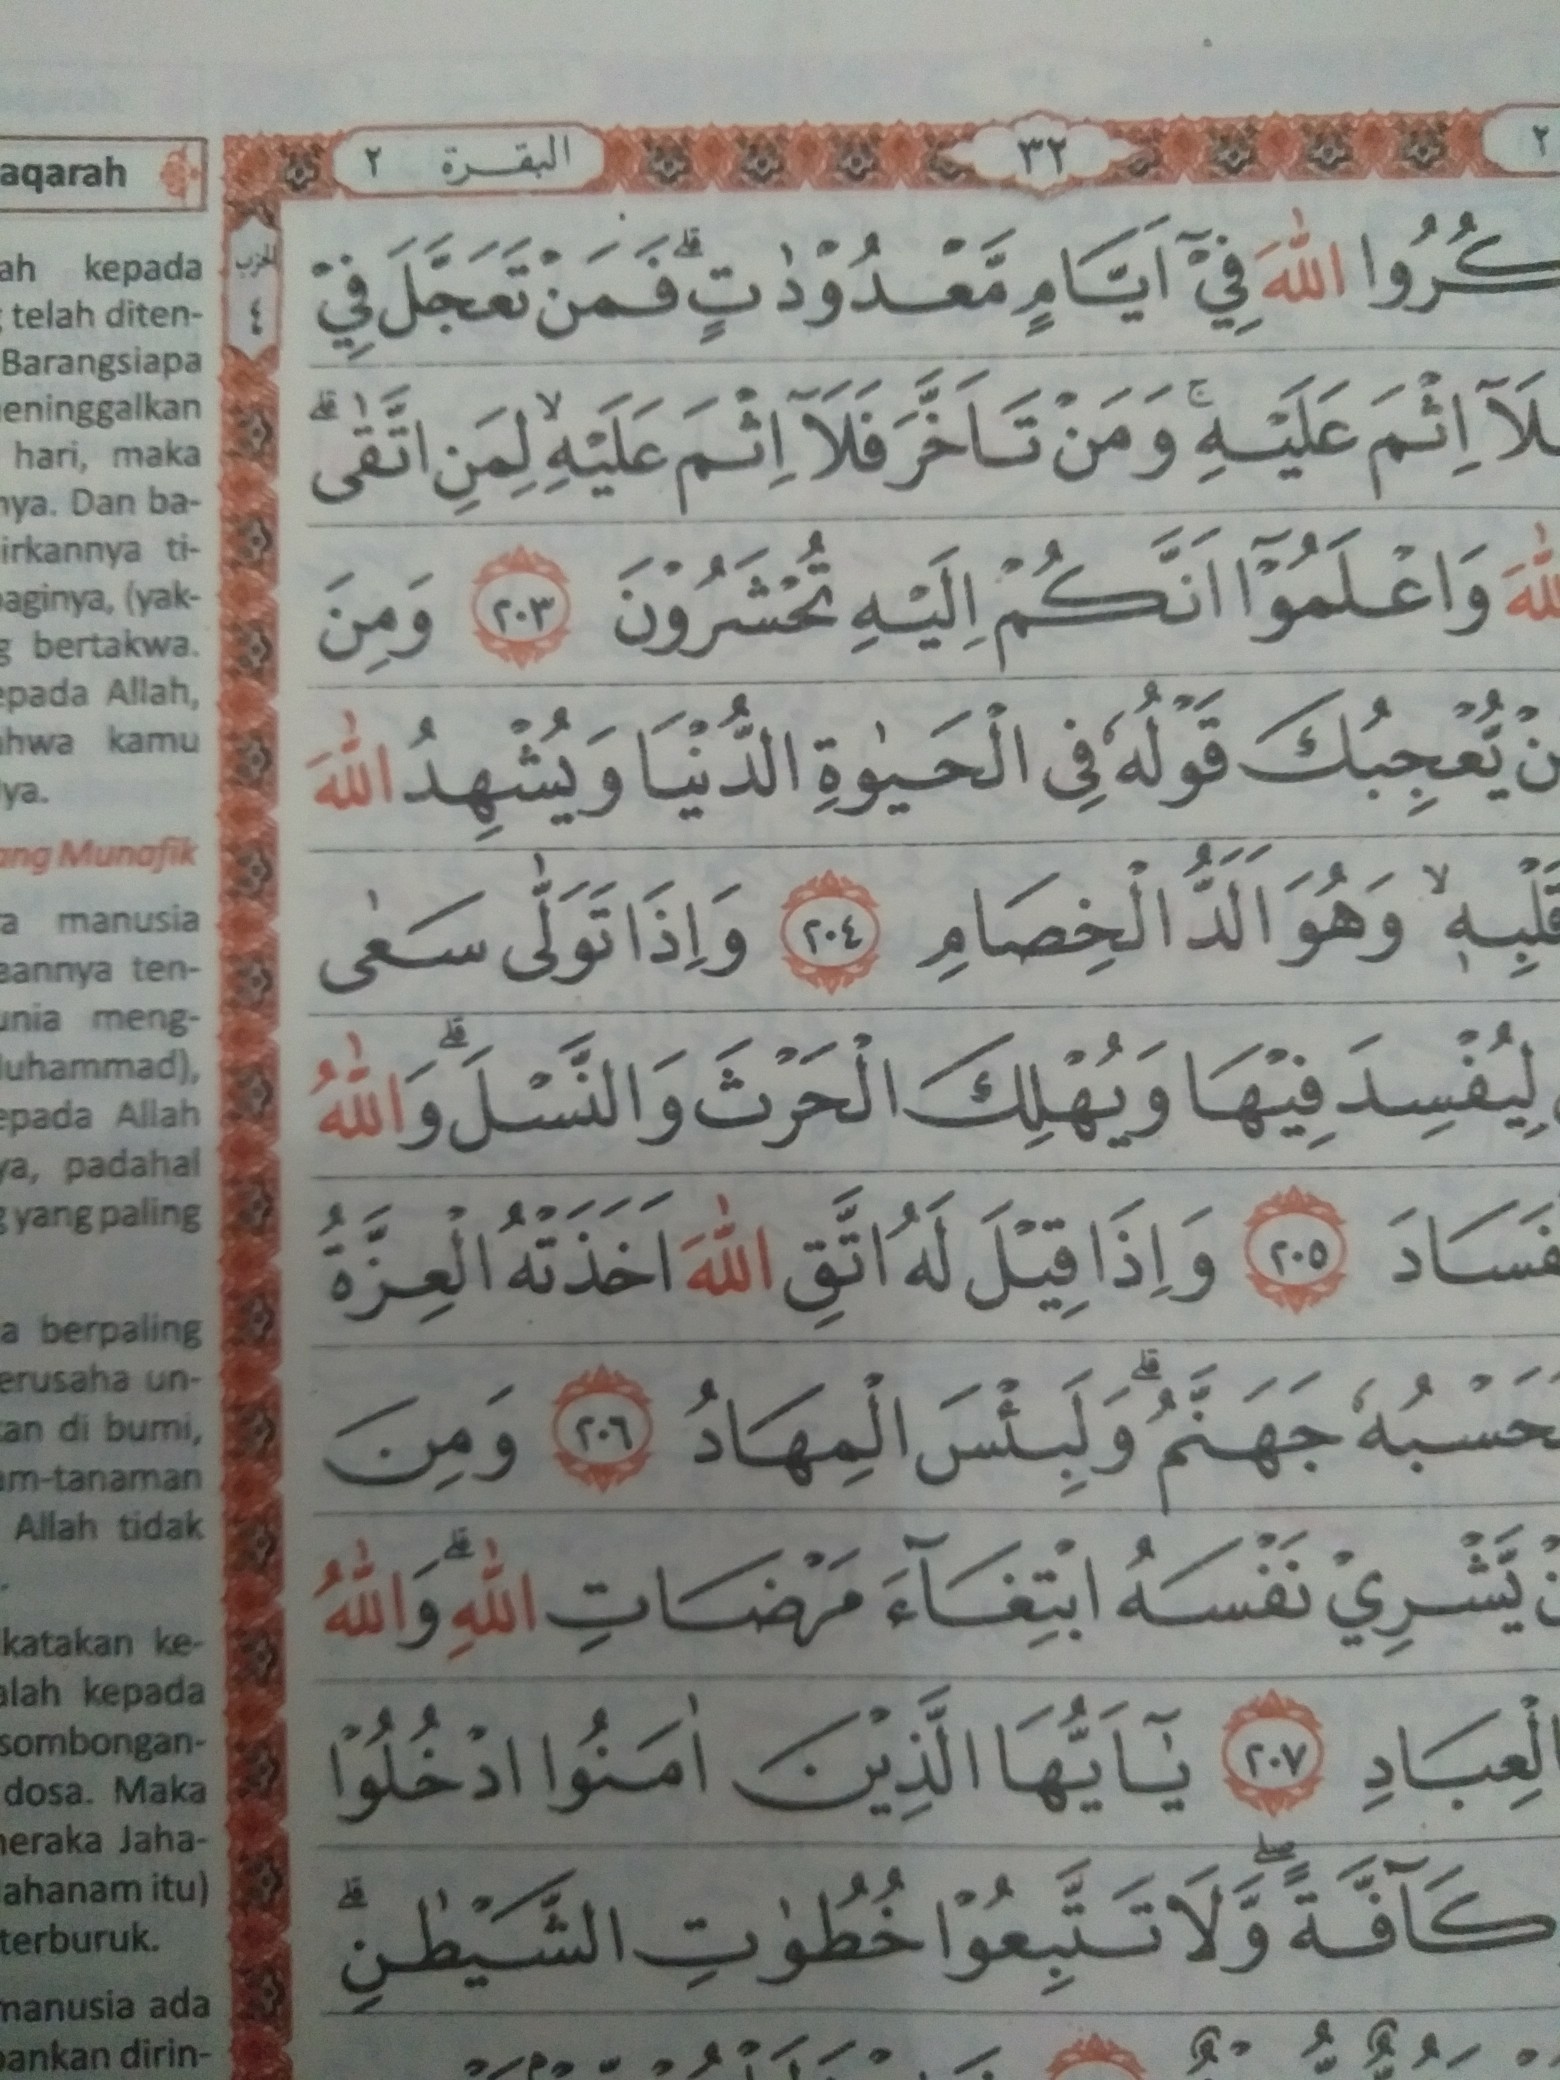 aqarah
ah kepada
telah diten-
Barangsiapa
eninggalkan
hari, maka
nya. Dan ba-
irkannya ti-
paginya, (yak-
g bertakwa.
epada Allah,
ahwa kamu
ya.
ang Munafik
ra manusia
aannya ten-
unia meng-
Muhammad),
epada Allah
ya, padahal
g yang paling
a berpaling
erusaha un-
kan di bumi,
am-tanaman
Allah tidak
katakan ke-
alah kepada
sombongan-
dosa. Maka
neraka Jaha-
ahanam itu)
terburuk.
manusia ada
bankan dirin-
البقرة ٢
٣٢
٢
الحزب
٤
كُرُوا اللّٰهَ فِيْٓ اَيَّامٍ مَّعْدُوْدٰتٍ ۗ فَمَنْ تَعَجَّلَ فِيْ
لَآ اِثْمَ عَلَيْهِ ۚ وَمَنْ تَاَخَّرَ فَلَآ اِثْمَ عَلَيْهِ ۙ لِمَنِ اتَّقٰى ۗ
اللّٰهَ وَاعْلَمُوْٓا اَنَّكُمْ اِلَيْهِ تُحْشَرُوْنَ ٢٠٣ وَمِنَ
نْ يُّعْجِبُكَ قَوْلُهٗ فِى الْحَيٰوةِ الدُّنْيَا وَيُشْهِدُ اللّٰهَ
قَلْبِهٖ ۙ وَهُوَ اَلَدُّ الْخِصَامِ ٢٠٤ وَاِذَا تَوَلّٰى سَعٰى
لِيُفْسِدَ فِيْهَا وَيُهْلِكَ الْحَرْثَ وَالنَّسْلَ ۗ وَاللّٰهُ
فَسَادَ ٢٠٥ وَاِذَا قِيْلَ لَهُ اتَّقِ اللّٰهَ اَخَذَتْهُ الْعِزَّةُ
حَسْبُهٗ جَهَنَّمُ ۗ وَلَبِئْسَ الْمِهَادُ ٢٠٦ وَمِنَ
نْ يَّشْرِيْ نَفْسَهُ ابْتِغَاۤءَ مَرْضَاتِ اللّٰهِ ۗ وَاللّٰهُ
الْعِبَادِ ٢٠٧ يٰٓاَيُّهَا الَّذِيْنَ اٰمَنُوا ادْخُلُوْا
كَاۤفَّةً ۖ وَّلَا تَتَّبِعُوْا خُطُوٰتِ الشَّيْطٰنِ ۗ